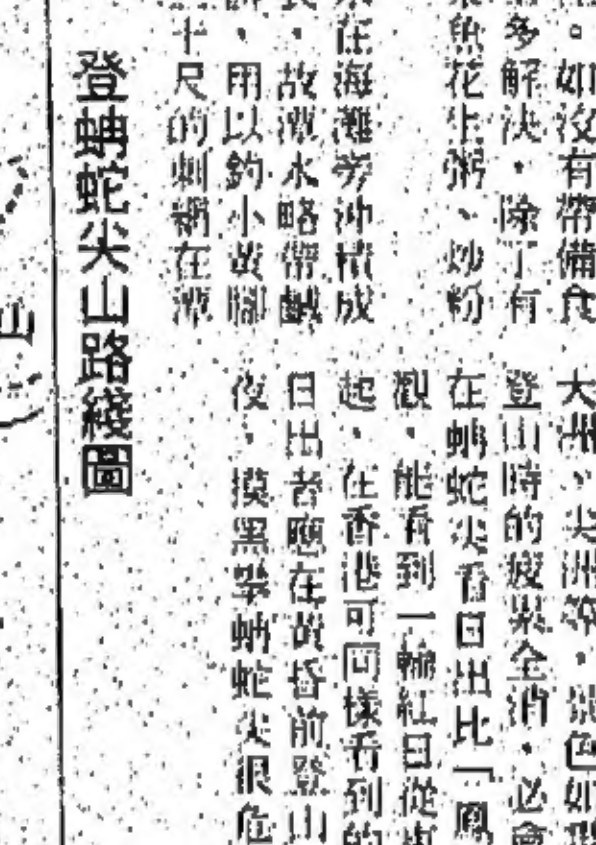 。如沒有帶備食
多解決，除了有
魚花生粥、炒粉
在海灘旁沖積成
，故潭水略帶鹹
，用以釣小黃腳
十尺的蝲䗁在潭
大洲、尖洲等，景色如
登山時的疲累全消，必會
在蚺蛇尖看日出比「鳳
觀，能看到一輪紅日從
起，在香港可同樣看到的
日出者應在黃昏前登山
夜，摸黑攀蚺蛇尖很危
登蚺蛇尖山路綫圖
山